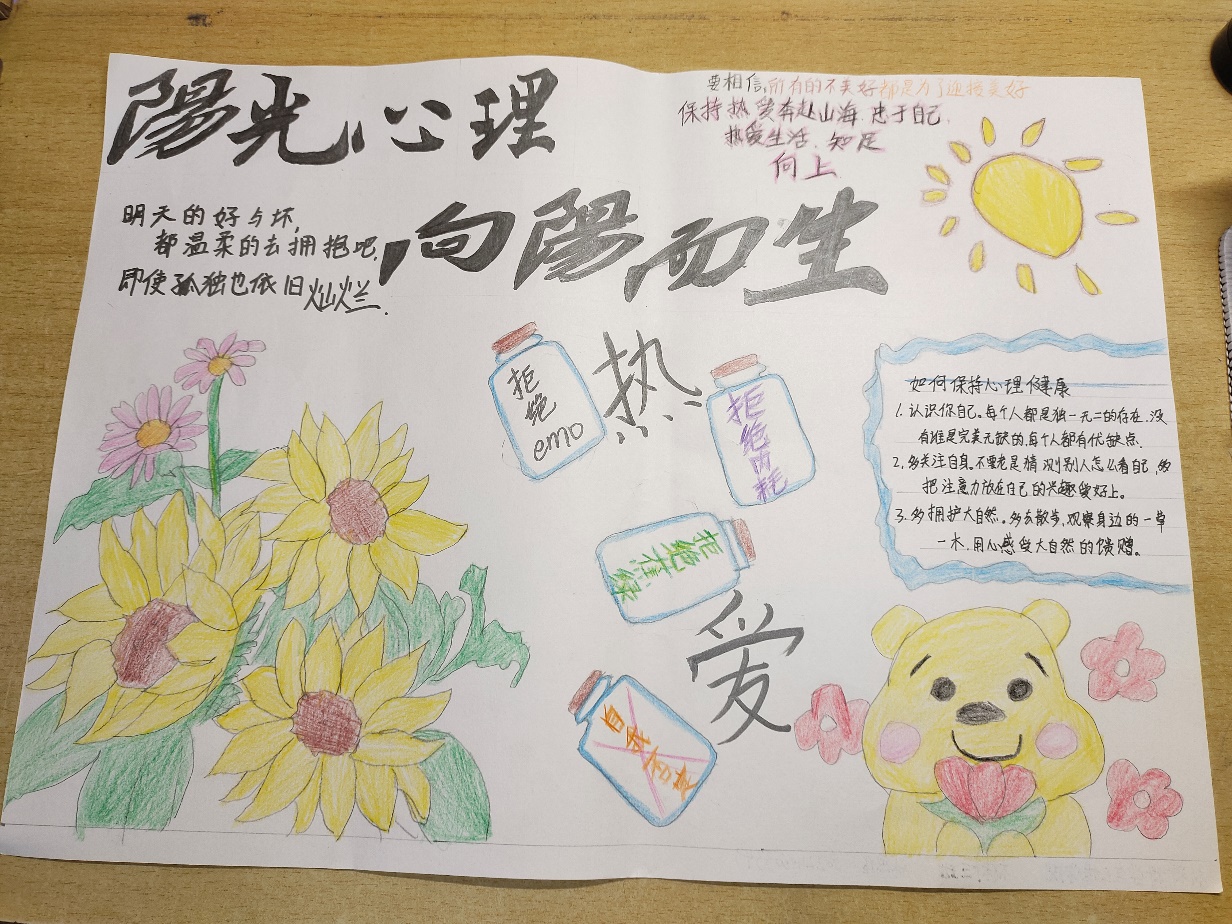 陽光心理
向陽而生
要相信,所有的不美好都是为了迎接美好
保持热爱奔赴山海.忠于自己.
热爱生活.知足
向上
明天的好与坏,
都温柔的去拥抱吧,
即使孤独也依旧灿烂.
拒绝emo
热
拒绝内耗
拒绝不
爱
自
如何保持心理健康
1.认识你自己。每个人都是独一无二的存在.没
有谁是完美无缺的,每个人都有优缺点.
2.多关注自身。不要老是猜测别人怎么看自己,多
把注意力放在自己的兴趣爱好上。
3.多拥护大自然。多去散步,观察身边的一草
一木,用心感受大自然的馈赠。